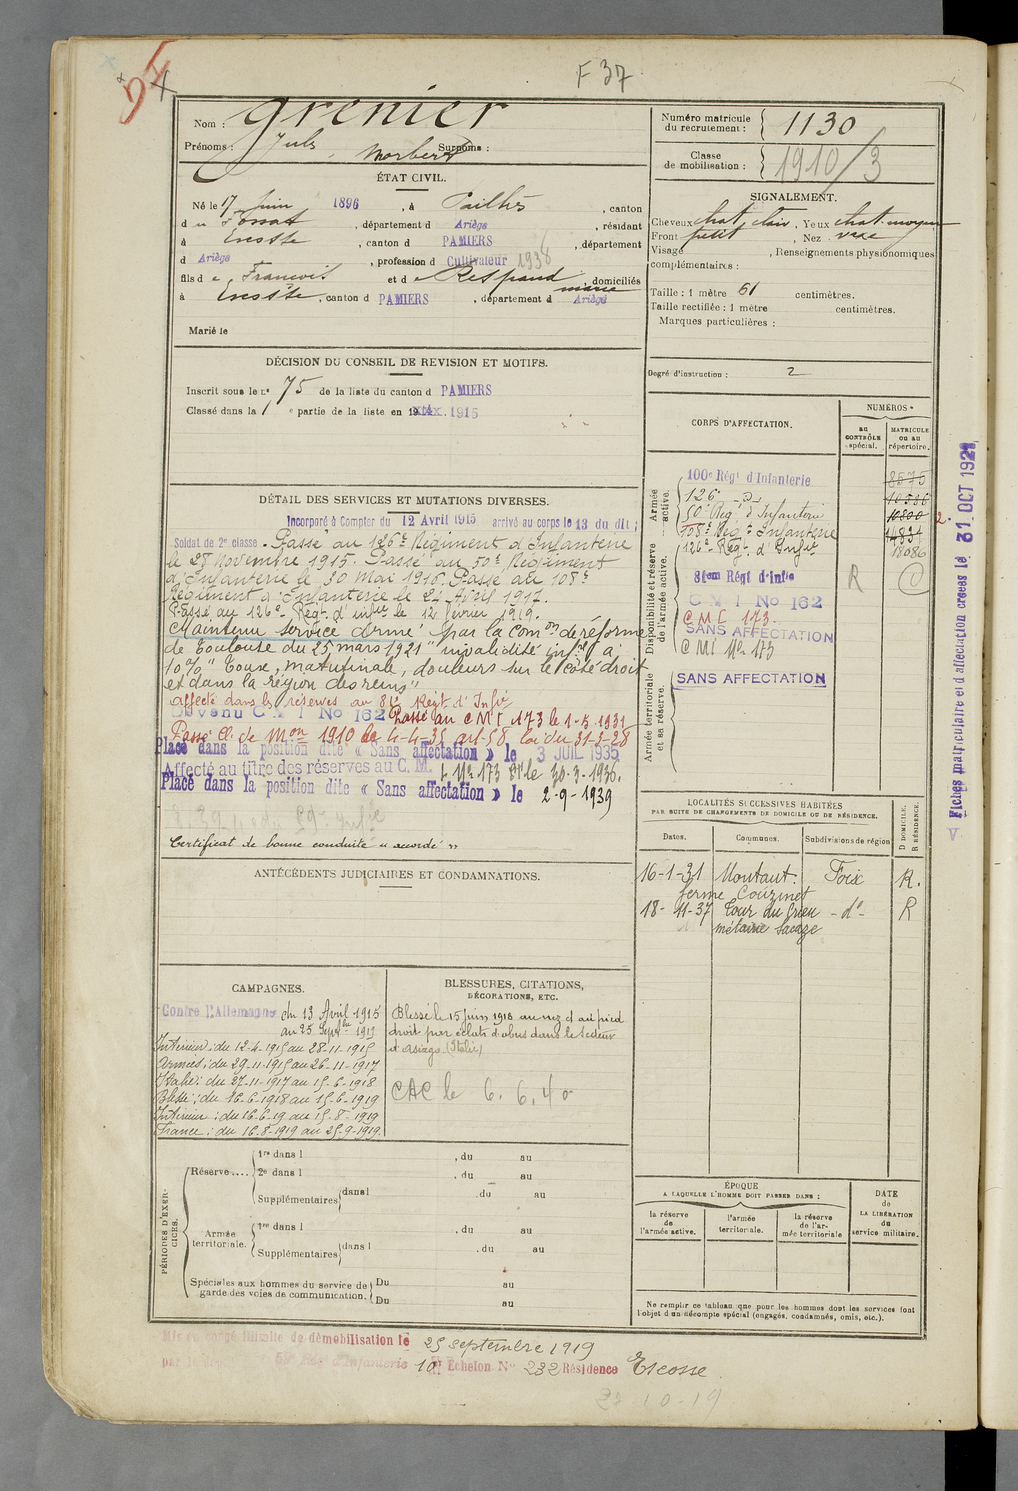 F 37
Nom : Grenier
Prénoms : Jules Norbert Surnoms :
Numéro matricule du recrutement : 1130
Classe de mobilisation : 1910/3
ÉTAT CIVIL.
Né le 17 Juin 1896, à Pailhès, canton
du Fossat, département d Ariège, résidant
à Escosse, canton d PAMIERS, département
d Ariège, profession d Cultivateur 1938
fils de François et de Respaud Marie domiciliés
à Escosse, canton d PAMIERS, département d Ariège
Marié le
SIGNALEMENT.
Cheveux chat. clair, Yeux chat. moyen
Front petit, Nez vexe
Visage , Renseignements physionomiques
complémentaires :
Taille : 1 mètre 61 centimètres.
Taille rectifiée : 1 mètre centimètres.
Marques particulières :
Degré d'instruction : 2
DÉCISION DU CONSEIL DE REVISION ET MOTIFS.
Inscrit sous le n° 75 de la liste du canton d PAMIERS
Classé dans la 1e partie de la liste en 1915
DÉTAIL DES SERVICES ET MUTATIONS DIVERSES.
Incorporé à Compter du 12 Avril 1915 arrivé au corps le 13 du dit ;
Soldat de 2e classe. Passé au 126e Régiment d'Infanterie
le 28 Novembre 1915. Passé au 50e Régiment
d'Infanterie le 30 Mai 1916. Passé au 108e
Régiment d'Infanterie le 24 Avril 1917.
Passé au 126e Régt. d'infie le 12 février 1919.
Maintenu service armé par la Comon de réforme
de Toulouse du 25 mars 1921 "invalidité infre à
10% "Toux, matutinale, douleurs sur le côté droit
et dans la région des reins"
affecté dans les réserves au 81e Régt d'Infie
Devenu C M I No 162 Passé au C M I 173 le 1-5-1931
Passé Cl. de Mon 1910 le 4-4-35 art 58 loi du 31-3-28
Placé dans la position dite « Sans affectation » le 3 JUIL 1935
Affecté au titre des réserves au C. M. I No 173 le 30-3-1936.
Placé dans la position dite « Sans affectation » le 2-9-1939
Certificat de bonne conduite "accordé"
CORPS D'AFFECTATION.
NUMÉROS
au CONTRÔLE spécial.
MATRICULE ou au répertoire.
Armée active.
100e Régt d'Infanterie 8575
126e -d°- 10586
50e Régt d'Infanterie 10800
108e Régt Infanterie 14831
126e Régt. d'Infie 18086
Disponibilité et réserve de l'armée active.
81em Régt d'infie R C
C M I No 162
C M I 173
SANS AFFECTATION
C M I No 173
Armée territoriale et sa réserve.
SANS AFFECTATION
Fiches matriculaire et d'affectation créées le 31 OCT 1921
ANTÉCÉDENTS JUDICIAIRES ET CONDAMNATIONS.
LOCALITÉS SUCCESSIVES HABITÉES
PAR SUITE DE CHANGEMENTS DE DOMICILE OU DE RÉSIDENCE.
Dates. Communes. Subdivisions de région D DOMICILE. R RÉSIDENCE.
16-1-31 Montaut. Foix R.
ferme Couzinet
18-11-37 Tour du Grieu -d°- R
métairie Sacaze
CAMPAGNES.
Contre l'Allemagne du 13 Avril 1915
au 25 Septbre 1919
Intérieur : du 12-4-1915 au 28-11-1915
Armées : du 29-11-1915 au 26-11-1917
Italie : du 27-11-1917 au 15-6-1918
Blessé : du 16-6-1918 au 15-6-1919
Intérieur : du 16-6-19 au 15-8-1919
France : du 16-8-1919 au 25-9-1919.
BLESSURES, CITATIONS,
DÉCORATIONS, ETC.
Blessé le 15 juin 1918 au nez et au pied
droit par éclats d'obus dans le secteur
d'Asiago (Italie)
CAC le 6.6.40
PÉRIODES D'EXERCICES.
Réserve.... 1re dans l , du au
2e dans l , du au
Supplémentaires dans l , du au
Armée territoriale. 1re dans l , du au
Supplémentaires dans l , du au
Spéciales aux hommes du service de garde des voies de communication. Du au
Du au
ÉPOQUE
A LAQUELLE L'HOMME DOIT PASSER DANS :
la réserve de l'armée active.
l'armée territoriale.
la réserve de l'armée territoriale
DATE de LA LIBÉRATION du service militaire.
Ne remplir ce tableau que pour les hommes dont les services font
l'objet d'un décompte spécial (engagés, condamnés, omis, etc.).
Mis en congé illimité de démobilisation le 25 septembre 1919
par le 59e Rég d'Infanterie 10 Echelon No 232 Résidence Escosse
27-10-19